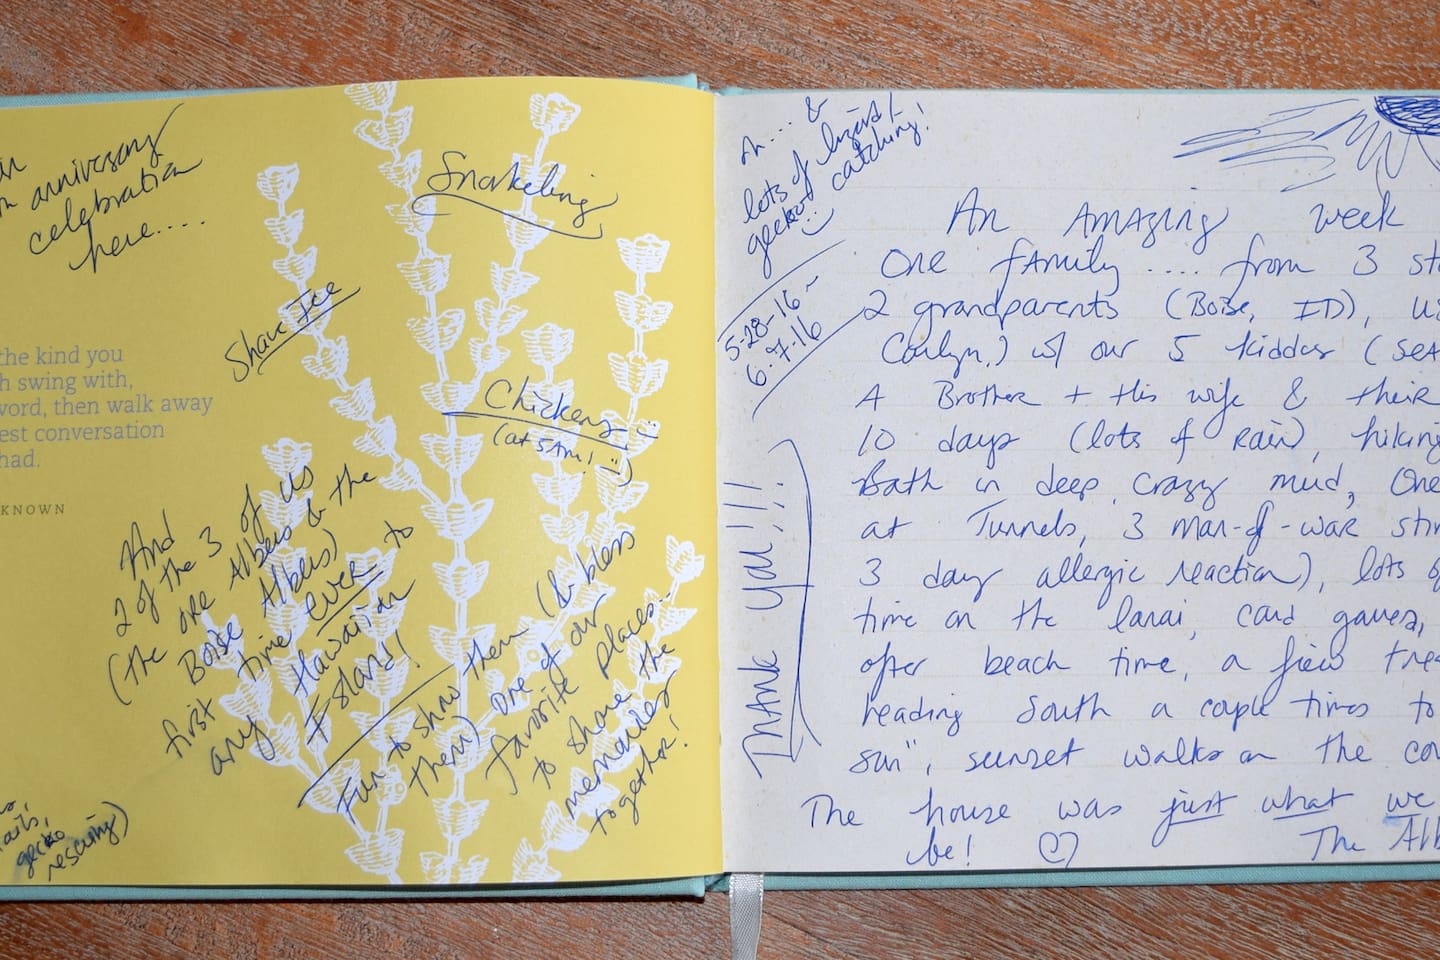 anniversary
celebration
here....
Snorkeling
Shave Ice
Chickens
(at 5 AM!
the kind you
h swing with,
word, then walk away
est conversation
had.
KNOWN
And
2 of the 3 of us
(the ORE Albers & the
Boise Albers)
first time EVER to
any Hawaiian
Island!
Fun to show them (& bless
them) one of our
favorite places...
to share the
memories
together!
ails,
gecko
rescuing)
Ah.... &
lots of lizard/
gecko catching!
5-28-16 ~
6-7-16
Thank you!!!
An Amazing week
One family .... from 3 st
2 grandparents (Boise, ID), u
w/ our 5 kiddos (Sea
A Brother + this wife & their
10 days (lots of Rain), hiking
Bath in deep, crazy mud, One
at Tunnels, 3 man-of-war stin
3 day allergic reaction), lots o
time on the lanai, card games,
after beach time, a few tre
heading South a couple times to
sun", sunset walks on the co
The house was just what we
be! ♡ The Alb